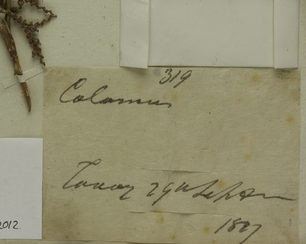 319
Calamus
Tavoy 29th Septr
1827
2012